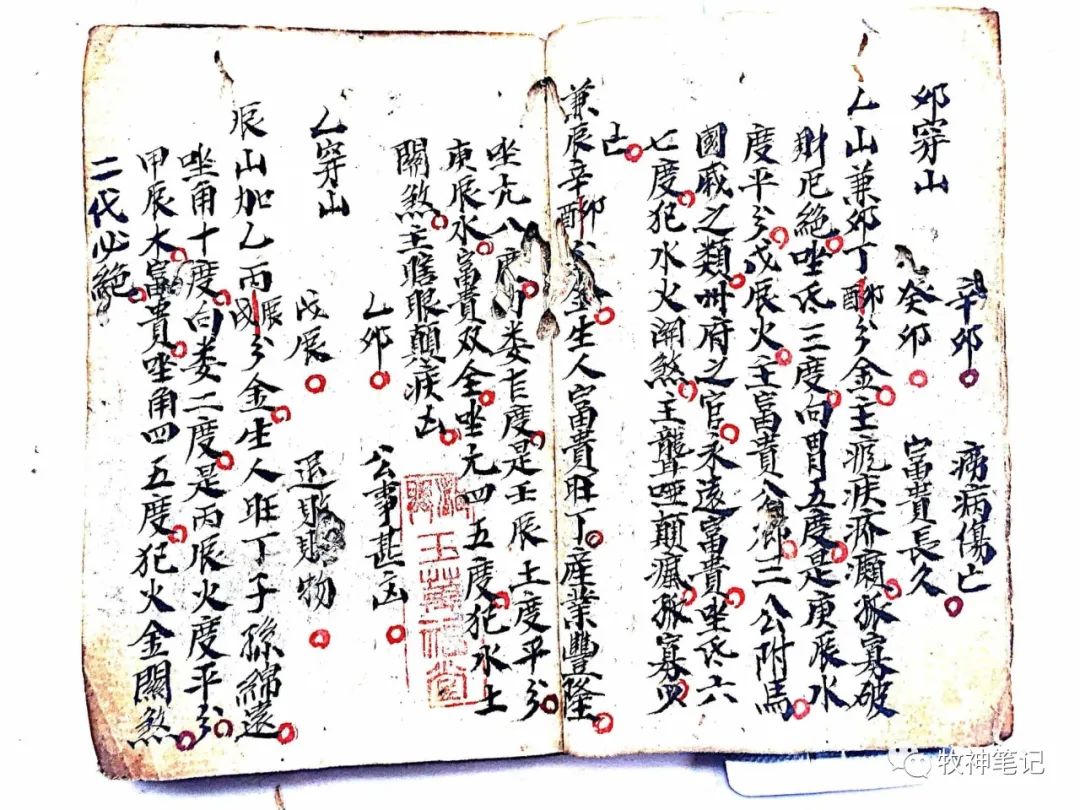 辛卯 癆病傷亡
夘穿山 癸卯 富貴長久
乙山兼夘丁酉卯分金主疯疾疥癩孤寡破
財厄絶坐氐三度向胃五度是庚辰水
度平分戊辰火主富貴公卿二公附馬
國戚之類州府之官永遠富貴坐氐六
七度犯水火関煞主聾啞顛瘋孤寡凶
亡
兼辰辛酉卯分金生人富貴旺丁産業豐隆
坐亢八度向娄七度是壬辰土度平分
庚辰水富貴双全坐亢四五度犯水土
關煞主瞎眼顛疾凶
乙夘 公事甚凶
乙穿山 戊辰 退財物
辰山加乙丙辰戌分金生人旺丁子孫綿遠
坐角十度向娄二度是丙辰火度平分
甲辰木富貴坐角四五度犯火金關煞
二代必絶
玉黃
牧神笔记